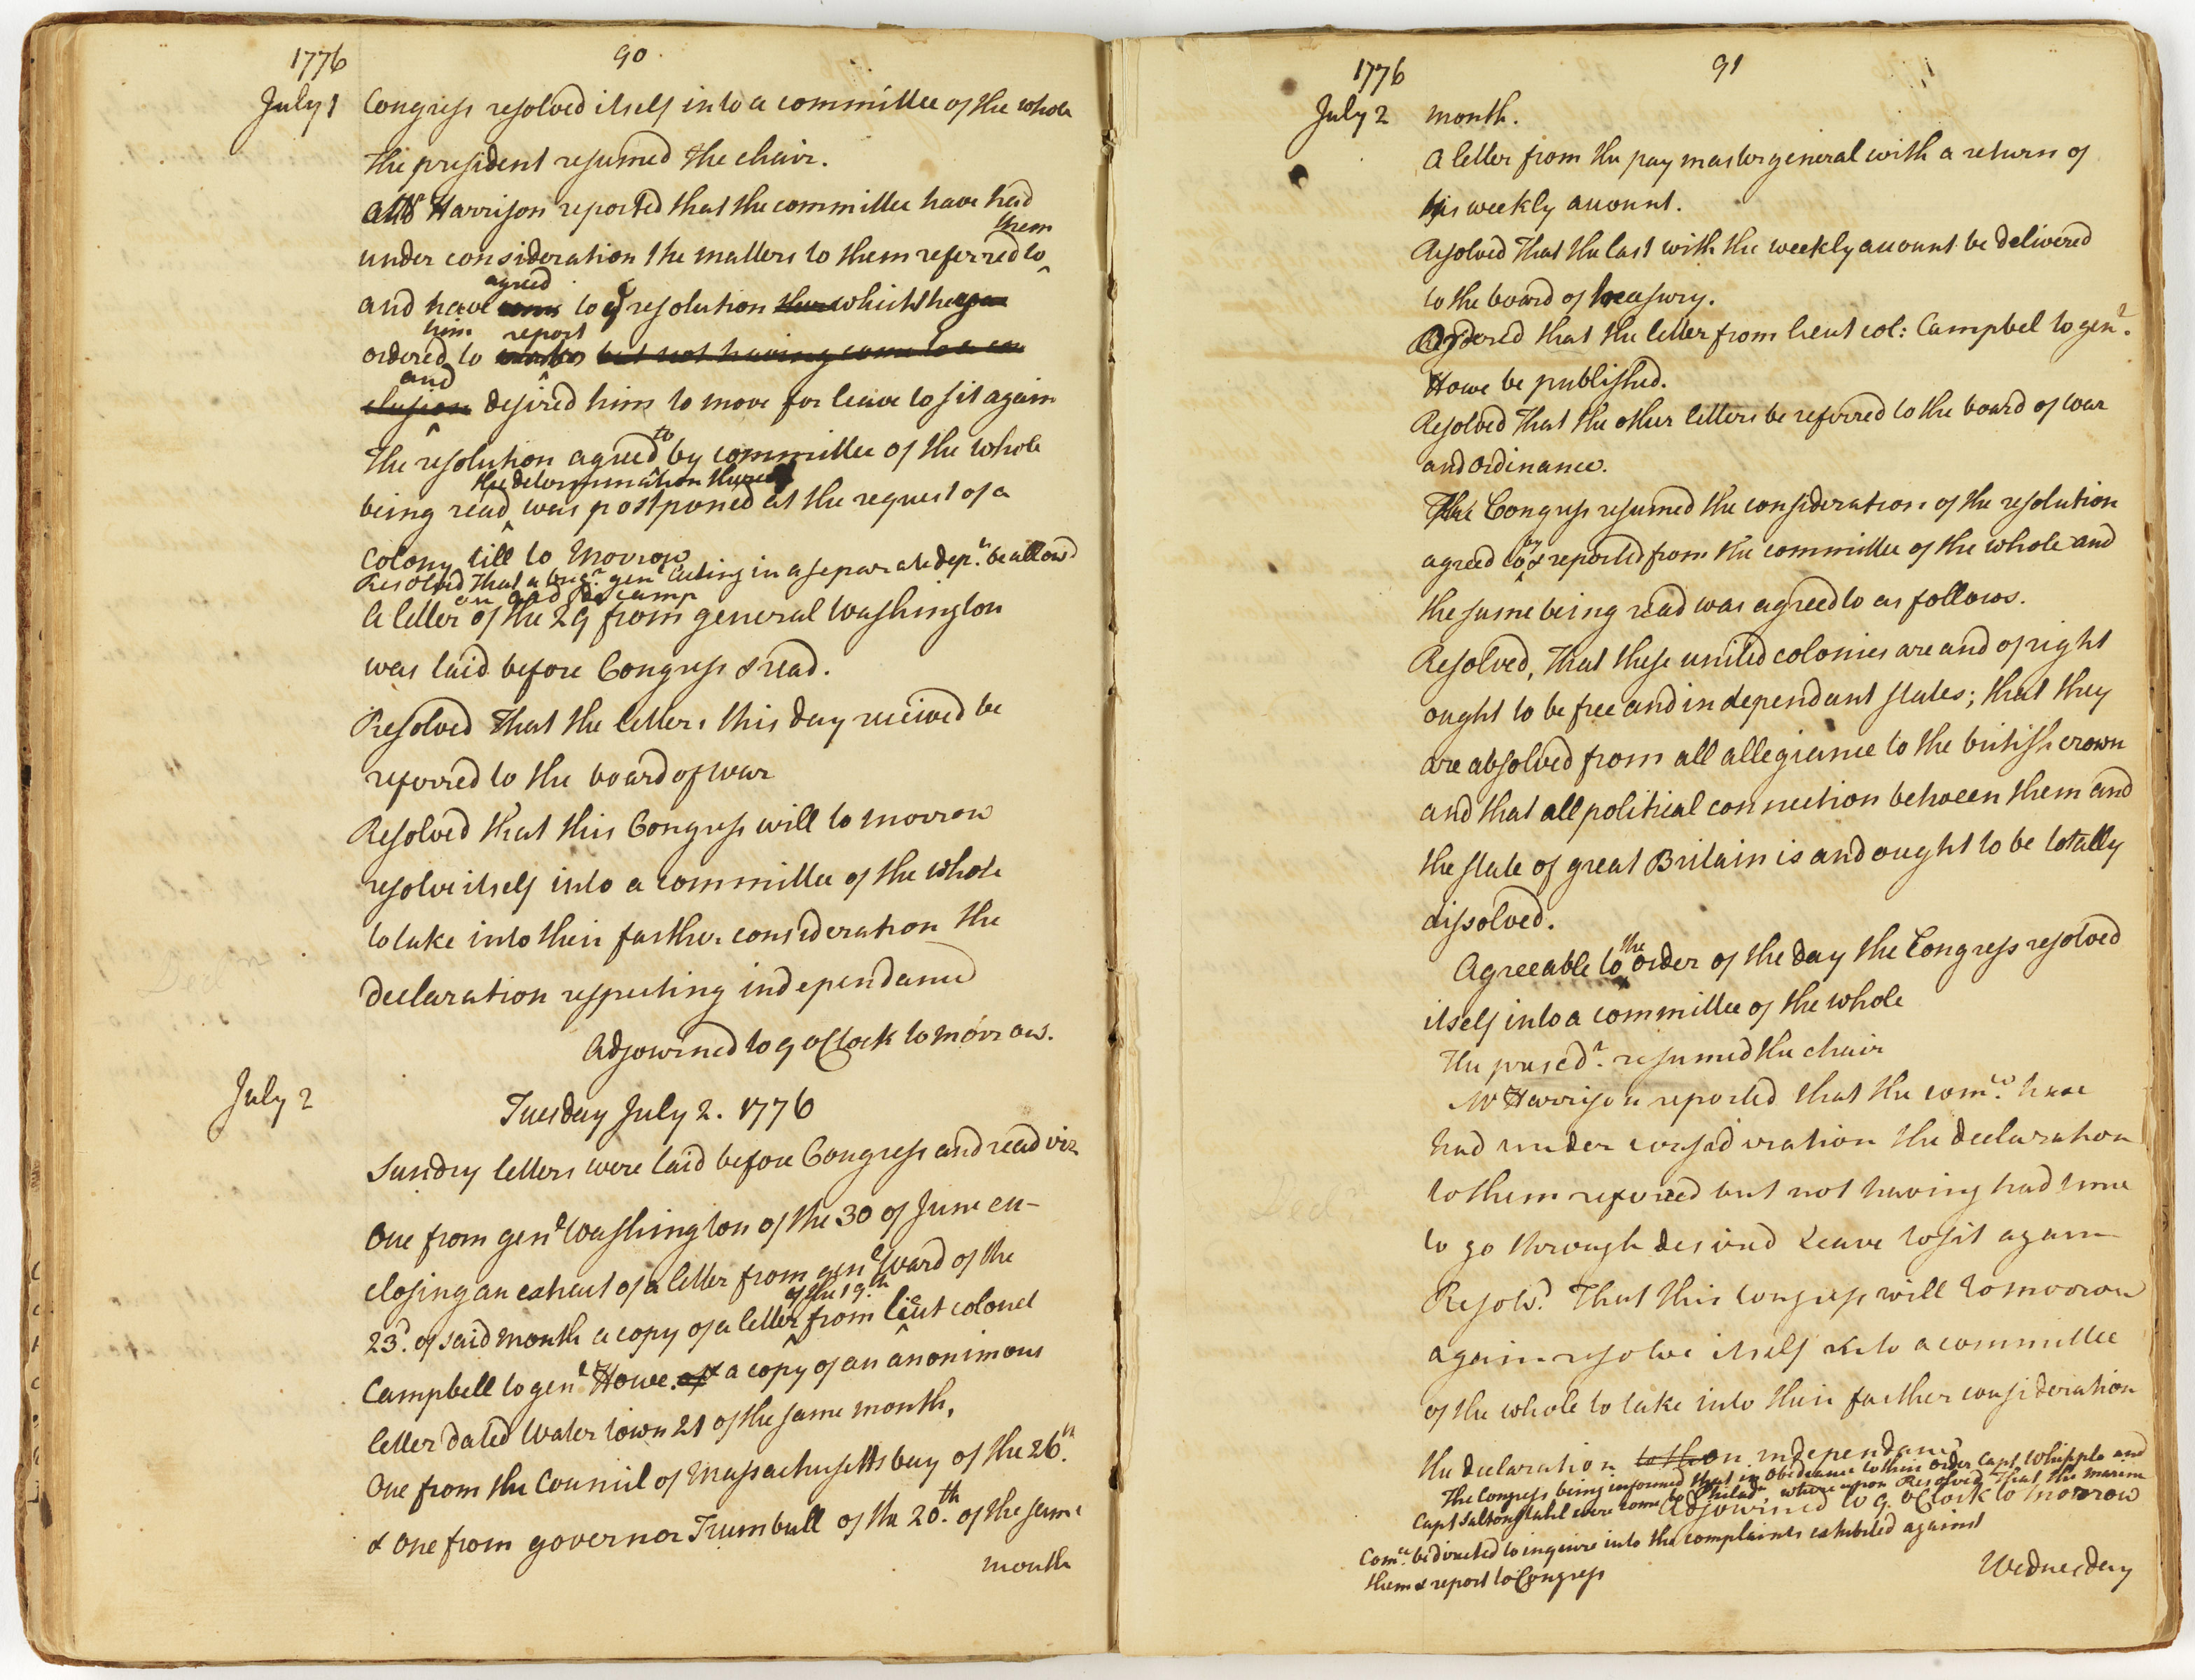 1776
90
July 1
Congress resolved itself into a committee of the whole
The president resumed the chair.
Mr Harrison reported that the committee have had
them
under consideration the matters to them referred to
agreed
and have come to a resolution which he
him report
ordered to but not having come to a con
and
clusion desired him to move for leave to sit again
The resolution agreed to by committee of the whole
the determination thereof
being read was postponed at the request of a
Colony till to Morrow
Resolved That a brigr. genl acting in a separate dept. be allowd
an aid de camp
A letter of the 29 from general Washington
was laid before Congress & read.
Resolved That the letters this day received be
referred to the board of war
Resolved that this Congress will to morrow
resolve itself into a committee of the whole
to take into their farther consideration the
declaration respecting independance
Adjourned to 9 oClock to morrow.
July 2
Tuesday July 2. 1776
Sundry letters were laid before Congress and read viz
One from genl Washington of the 30 of June en-
closing an extract of a letter from genl Ward of the
of the 19th
23d. of said month a copy of a letter from lieut colonel
Campbell to genl Howe. & a copy of an anonimous
letter dated Water town 21 of the same month,
One from the Council of Massachusetts bay of the 26th.
& One from governor Trumbull of the 20th. of the same
month
1776
91
July 2
month.
A letter from the pay master general with a return of
his weekly account.
Resolved That the last with the weekly account be delivered
to the board of treasury.
Ordered that the letter from lieut col: Campbel to genl.
Howe be published.
Resolved That the other letters be referred to the board of war
and ordinance.
The Congress resumed the consideration of the resolution
agreed to by & reported from the committee of the whole and
the same being read was agreed to as follows.
Resolved, That these united colonies are and of right
ought to be free and independant states; that they
are absolved from all allegiance to the british crown
and that all political connection between them and
the state of great Britain is and ought to be totally
dissolved.
Agreeable to the order of the day the Congress resolved
itself into a committee of the whole
The presedt. resumed the chair
Mr Harrison reported that the comee. have
had under consideration the declaration
to them referred but not having had time
to go through desired leave to sit again
Resold. That this congress will tomorrow
again resolve itself into a committee
of the whole to take into their farther consideration
the declaration on independance
The Congress being informed that in obedience to their order Capt Whipple and
Capt Saltonstahl were come to Philada. whereupon Resolved That the marine
Adjourned to 9 oClock to morrow
Comee. be directed to inquire into the complaints exhibited against
them & report to Congress
Wednesday